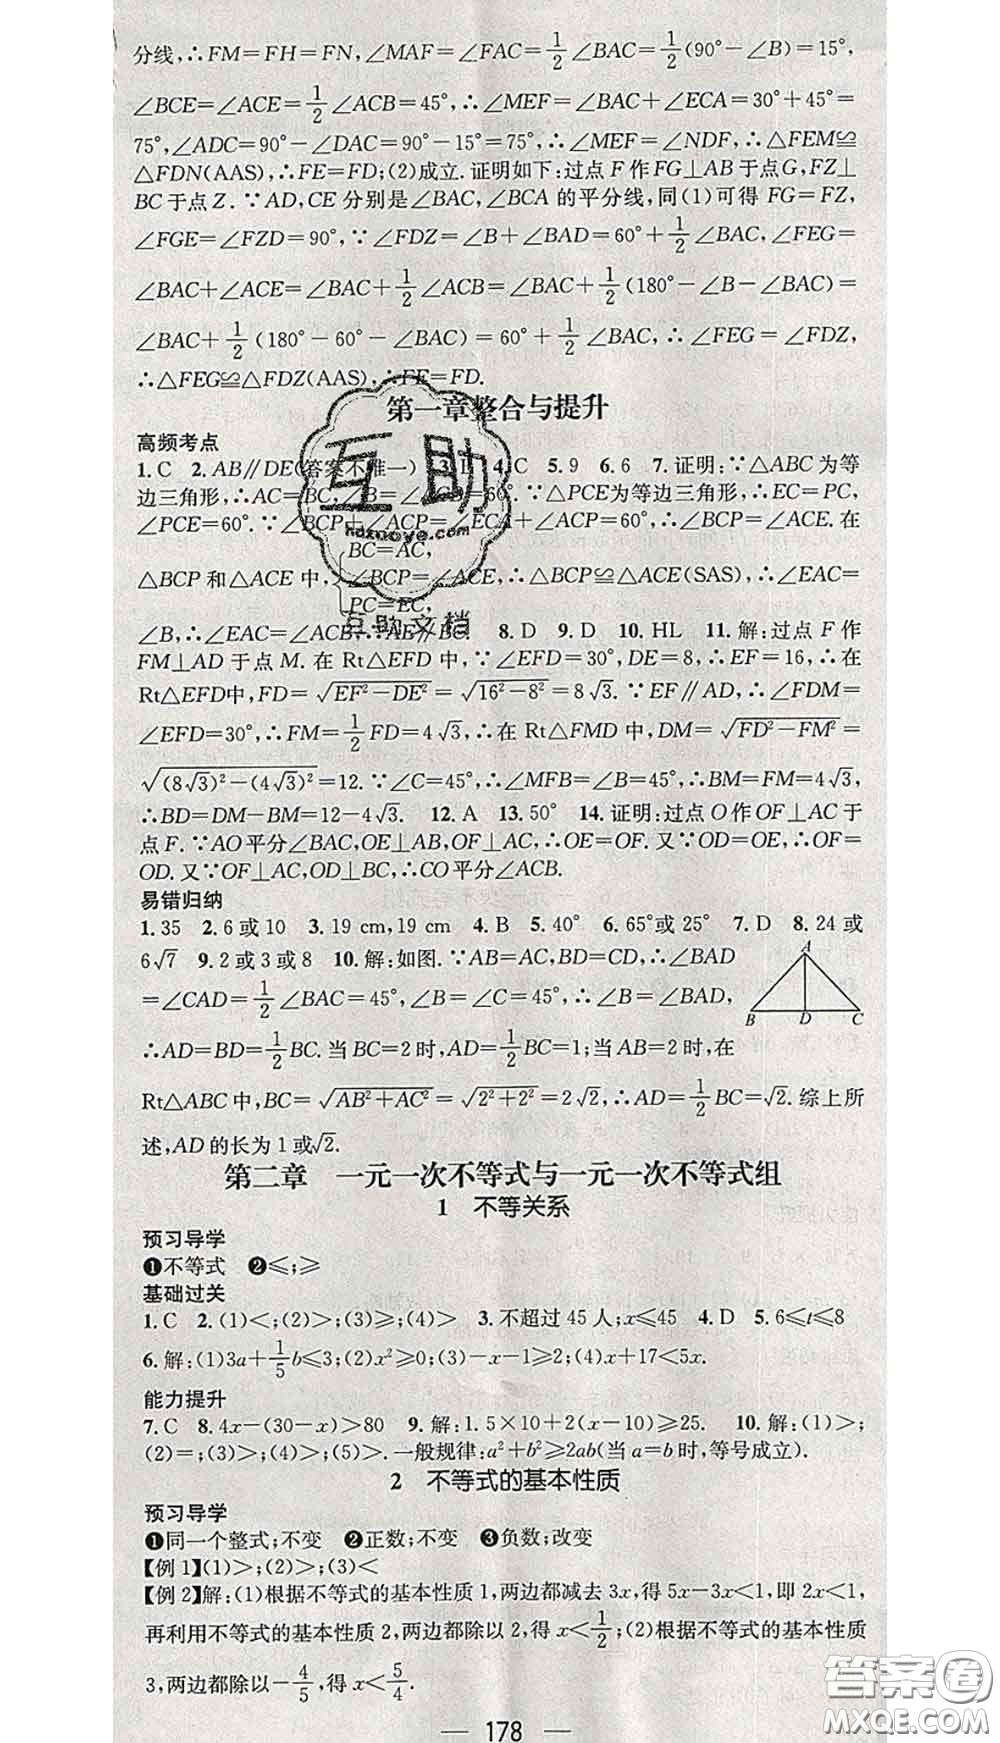 分线,∴FM=FH=FN,∠MAF=∠FAC=1/2∠BAC=1/2(90°-∠B)=15°,
∠BCE=∠ACE=1/2∠ACB=45°,∴∠MEF=∠BAC+∠ECA=30°+45°=
75°,∠ADC=90°-∠DAC=90°-15°=75°,∴∠MEF=∠NDF,∴△FEM≌
△FDN(AAS),∴FE=FD;(2)成立.证明如下:过点F作FG⊥AB于点G,FZ⊥
BC于点Z.∵AD,CE分别是∠BAC,∠BCA的平分线,同(1)可得FG=FZ,
∠FGE=∠FZD=90°,∵∠FDZ=∠B+∠BAD=60°+1/2∠BAC,∠FEG=
∠BAC+∠ACE=∠BAC+1/2∠ACB=∠BAC+1/2(180°-∠B-∠BAC)=
∠BAC+1/2(180°-60°-∠BAC)=60°+1/2∠BAC,∴∠FEG=∠FDZ,
∴△FEG≌△FDZ(AAS),∴FE=FD.
第一章整合与提升
高频考点
1.C 2.AB∥DE(答案不唯一) 3. 4.C 5.9 6.6 7.证明:∵△ABC为等
边三角形,∴AC=BC,∠B=∠ACB=60°.∵△PCE为等边三角形,∴EC=PC,
∠PCE=60°.∵∠BCP+∠ACP=∠ECA+∠ACP=60°,∴∠BCP=∠ACE.在
BC=AC,
△BCP和△ACE中,∠BCP=∠ACE,∴△BCP≌△ACE(SAS),∴∠EAC=
PC=EC,
∠B,∴∠EAC=∠ACB,∴AE∥BC. 8.D 9.D 10.HL 11.解:过点F作
FM⊥AD于点M.在Rt△EFD中,∵∠EFD=30°,DE=8,∴EF=16,∴在
Rt△EFD中,FD=√(EF²-DE²)=√(16²-8²)=8√3.∵EF∥AD,∴∠FDM=
∠EFD=30°,∴FM=1/2FD=4√3,∴在Rt△FMD中,DM=√(FD²-FM²)=
√((8√3)²-(4√3)²)=12.∵∠C=45°,∴∠MFB=∠B=45°,∴BM=FM=4√3,
∴BD=DM-BM=12-4√3. 12.A 13.50° 14.证明:过点O作OF⊥AC于
点F.∵AO平分∠BAC,OE⊥AB,OF⊥AC,∴OE=OF.又∵OD=OE,∴OF=
OD.又∵OF⊥AC,OD⊥BC,∴CO平分∠ACB.
易错归纳
1.35 2.6或10 3.19 cm,19 cm 4.B 5.40° 6.65°或25° 7.D 8.24或
6√7 9.2或3或8 10.解:如图.∵AB=AC,BD=CD,∴∠BAD
=∠CAD=1/2∠BAC=45°,∠B=∠C=45°,∴∠B=∠BAD,
A
B D C
∴AD=BD=1/2BC.当BC=2时,AD=1/2BC=1;当AB=2时,在
Rt△ABC中,BC=√(AB²+AC²)=√(2²+2²)=2√2,∴AD=1/2BC=√2.综上所
述,AD的长为1或√2.
第二章 一元一次不等式与一元一次不等式组
1 不等关系
预习导学
❶不等式 ❷≤;≥
基础过关
1.C 2.(1)<;(2)>;(3)≥;(4)> 3.不超过45人;x≤45 4.D 5.6≤t≤8
6.解:(1)3a+1/5b≤3;(2)x²≥0;(3)-x-1≥2;(4)x+17<5x.
能力提升
7.C 8.4x-(30-x)>80 9.解:1.5×10+2(x-10)≥25. 10.解:(1)>;
(2)=;(3)>;(4)>;(5)>.一般规律:a²+b²≥2ab(当a=b时,等号成立).
2 不等式的基本性质
预习导学
❶同一个整式;不变 ❷正数;不变 ❸负数;改变
【例1】(1)>;(2)>;(3)<
【例2】解:(1)根据不等式的基本性质1,两边都减去3x,得5x-3x<1,即2x<1,
再利用不等式的基本性质2,两边都除以2,得x<1/2;(2)根据不等式的基本性质
3,两边都除以-4/5,得x<5/4.
— 178 —
互助
hazuoye.com
互助文档
答案圈
MXQE.COM